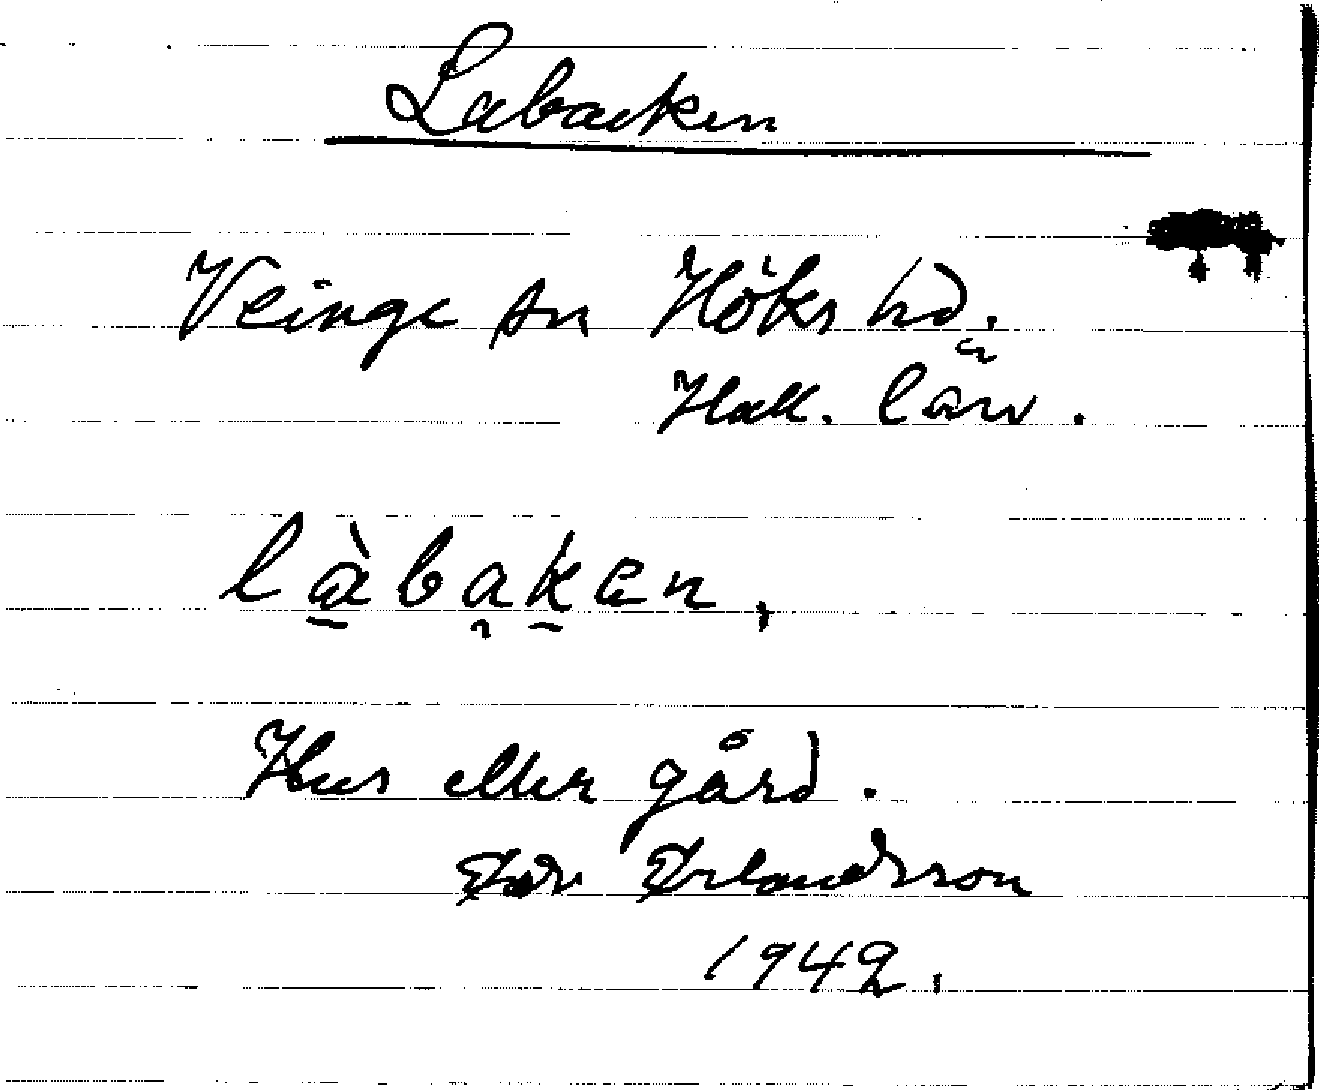 Labacken
Veinge sn Höks hd.
Hall. län.
làbaken,
Hus eller gård.
Erlandsson
1942.